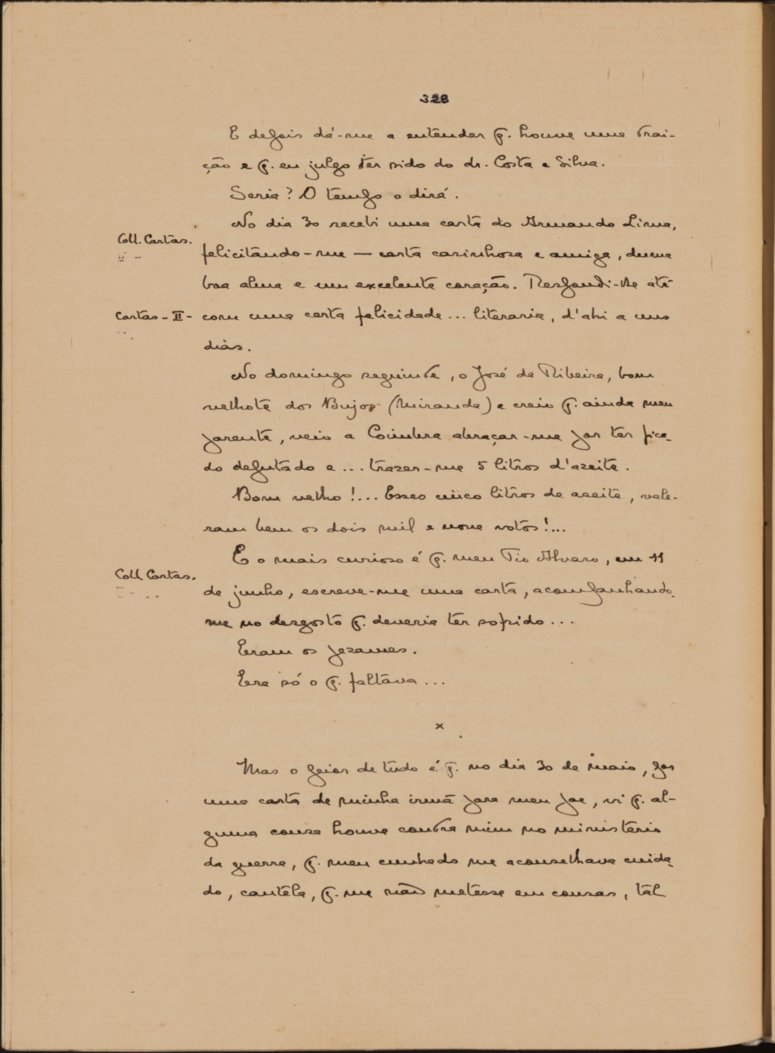 328
E depois dá-me a entender q. houve uma trai-
ção e q. eu julgo ter sido do dr. Costa e Silva.
Seria? O tempo o dirá.
No dia 30 recebi uma carta do Armando Lima,
Coll. Cartas.
felicitando-me — carta carinhosa e amiga, duma
boa alma e um excelente coração. Respondi-lhe até
Cartas - II - com uma certa felicidade... literaria, d'ahi a uns
dias.
No domingo seguinte, o José da Ribeira, bom
velhote dos Bujos (Miranda) e creio q. ainda meu
parente, veio a Coimbra abraçar-me por ter fica-
do deputado e... trazer-me 5 litros d'azeite.
Bom velho!... Esses cinco litros de azeite, vale-
ram bem os dois mil e nove votos!...
E o mais curioso é q. meu Tio Alvaro, em 11
Coll. Cartas.
de junho, escreve-me uma carta, acompanhando-
me no desgosto q. deveria ter sofrido...
Eram os pezames.
Era só o q. faltava...
x
Mas o peior de tudo é q. no dia 30 de maio, por
uma carta de minha irmã para meu pae, vi q. al-
guma cousa houve contra mim no ministerio
da guerra, q. meu cunhado me aconselhava cuida-
do, cautela, q. me não metesse em cousas, tal